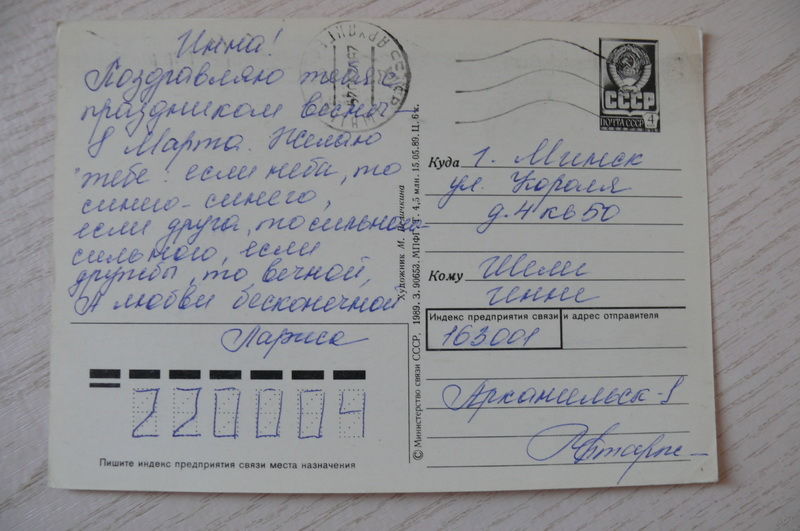 Инна!
Поздравляю тебя с
праздником весны –
8 Марта. Желаю
тебе: если неба, то
синего-синего,
если друга, то сильного-
сильного, если
дружбы, то вечной,
А любви бесконечной
Лариса
220004
Пишите индекс предприятия связи места назначения
© Министерство связи СССР. 1989. З. 90653. МПФГ. Т. 4,5 млн. 15.05.89. Ц. 6 к.
Художник М.
СССР
ПОЧТА СССР 4
Куда г. Минск
ул. Короля
д. 4 кв 50
Кому Шели
Инне
Индекс предприятия связи и адрес отправителя
163001
Архангельск-1